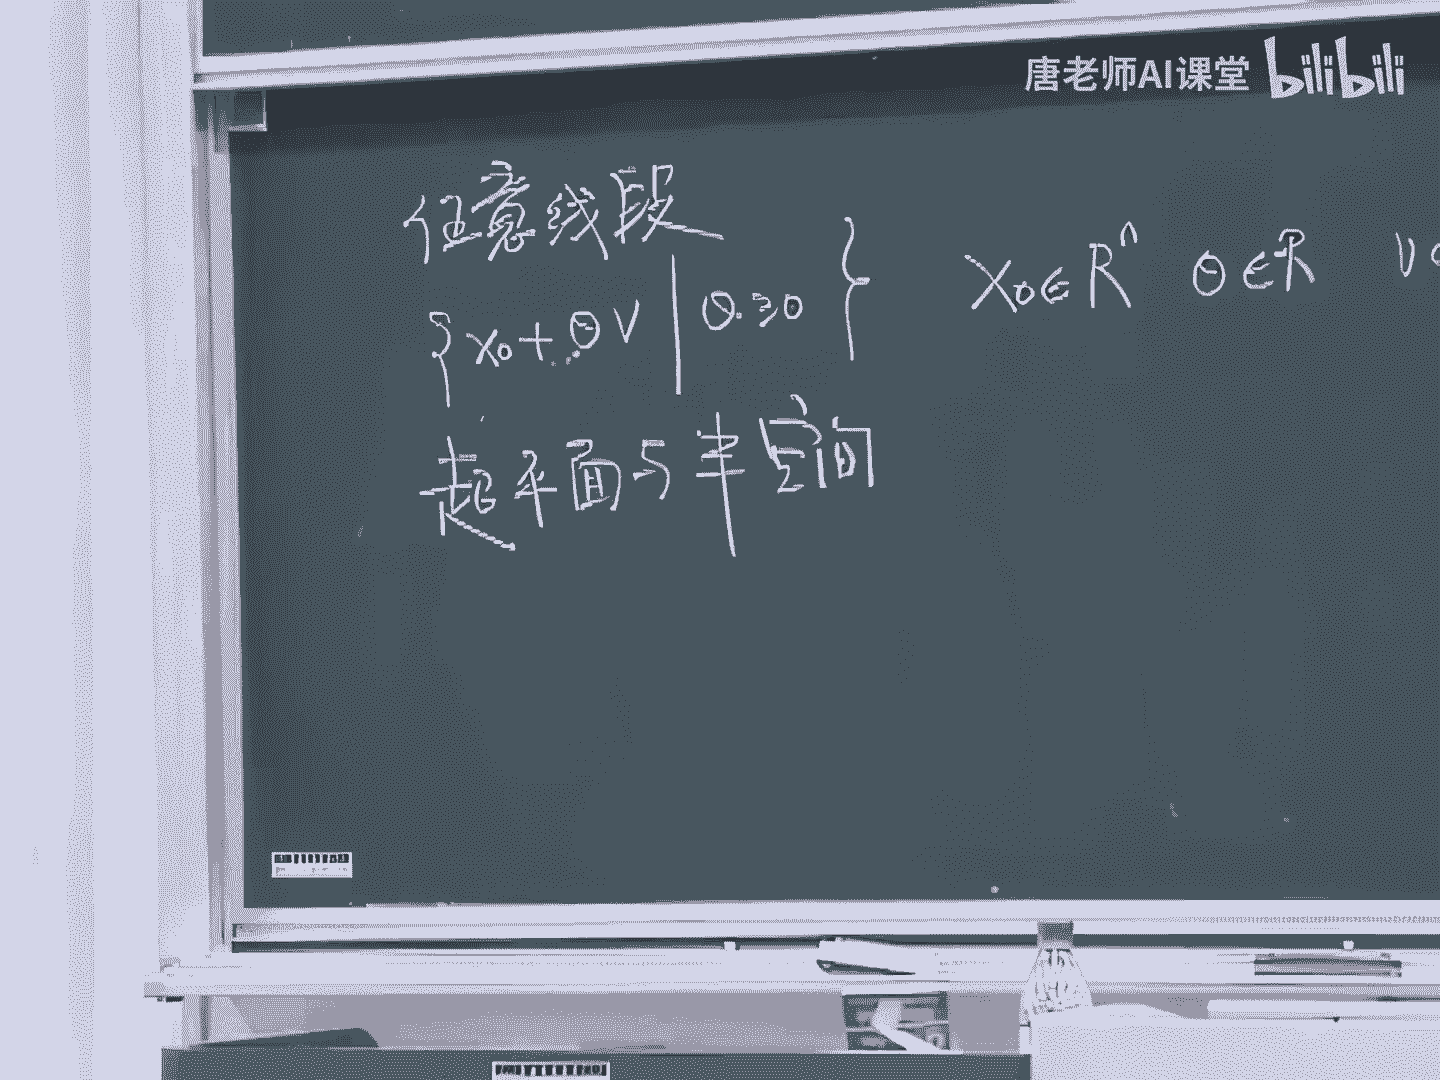 唐老师AI课堂 bilibili
任意线段
{x₀+θv | θ≥0} x₀∈Rⁿ θ∈R v
超平面与半空间